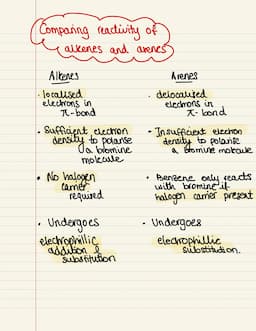 Comparing reactivity of
alkenes and arenes
Alkenes
• localised
electrons in
π-bond
• Sufficient electron
density to polarise
a bromine
molecule
• No halogen
carrier
required
• Undergoes
electrophillic
addition &
substitution
Arenes
• delocalised
electrons in
π-bond
• Insufficient electron
density to polarise
a bromine molecule
• Benzene only reacts
with bromine if
halogen carrier present
• Undergoes
electrophillic
substitution.